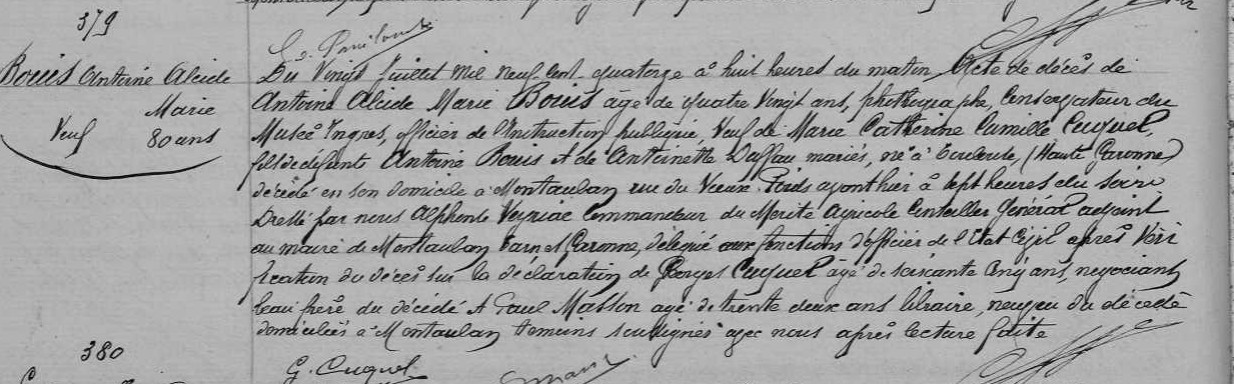 379
Bouis Antoine Alcide
Marie
Veuf 80 ans
Du Vingt Juillet mil neuf cent quatorze à huit heures du matin Acte de décès de
Antoine Alcide Marie Bouis âgé de quatre vingt ans, photographe, Conservateur du
Musée Ingres, officier de l'Instruction publique, Veuf de Marie Catherine Camille Cuquel,
fils de défunts Antoine Bouis et de Antoinette Daffau mariés, né à Toulouse, (Haute Garonne)
décédé en son domicile à Montauban rue du Vieux Poids avant hier à sept heures du soir
Dressé par nous Alphonse Commandeur du Mérite Agricole Conseiller Général adjoint
au maire de Montauban Tarn et Garonne, délégué aux fonctions d'officier de l'Etat Civil après Véri
fication du décès sur la déclaration de Georges Cuquel âgé de soixante cinq ans, negociant
beau frère du décédé et Paul Masson agé de trente deux ans libraire, neveu du décédé
domiciliés à Montauban témoins soussignés avec nous après lecture faite
380
G. Cuquel